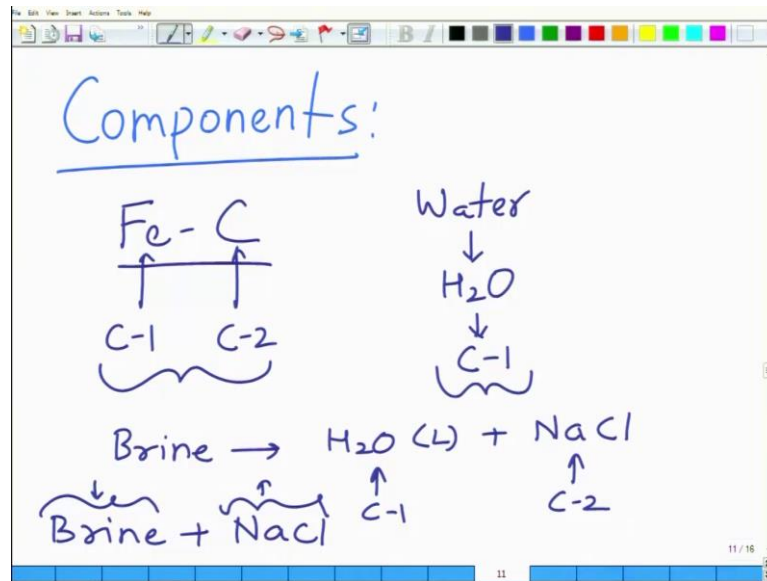 File Edit View Insert Actions Tools Help
B I
Components:
Fe - C
C-1 C-2
Water
↓
H₂O
↓
C-1
Brine → H₂O (L) + NaCl
C-1 C-2
Brine + NaCl
11 / 16
11